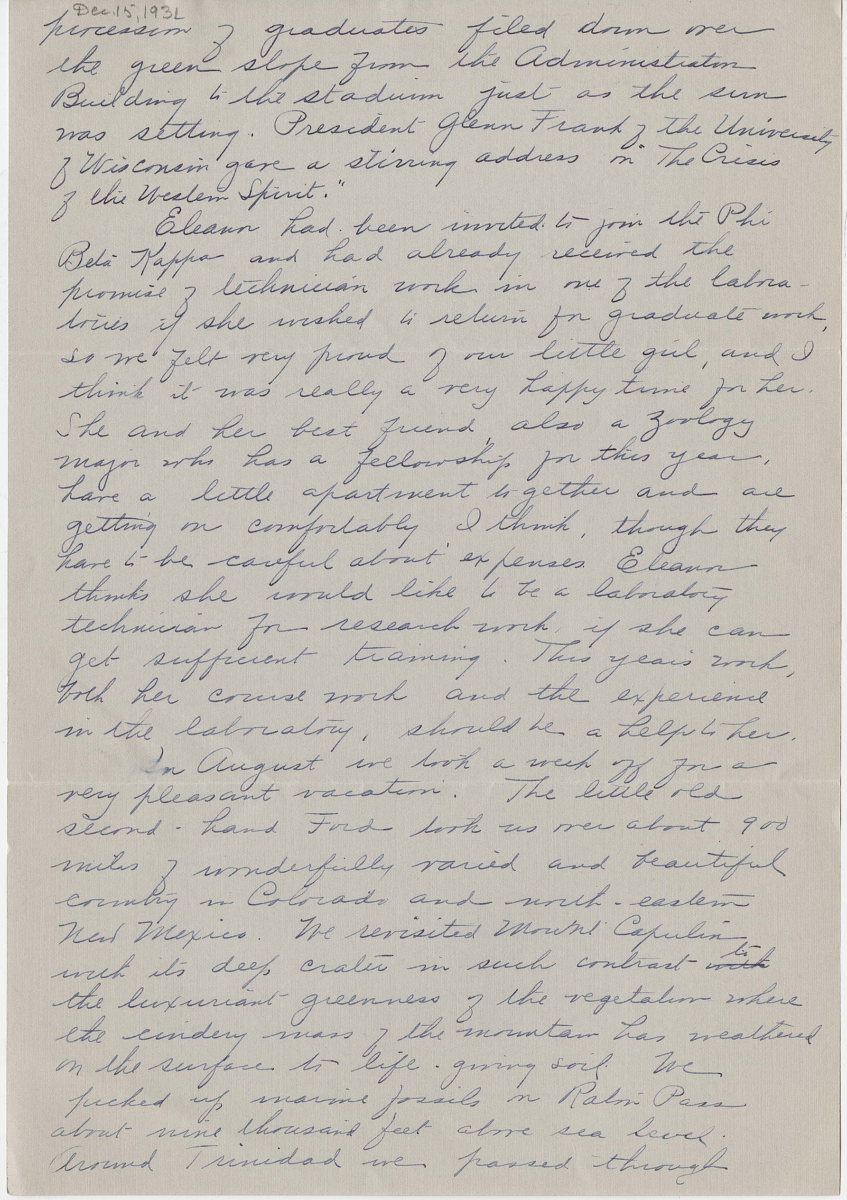 Dec. 15, 1932
procession of graduates filed down over
the green slope from the Administration
Building to the stadium just as the sun
was setting. President Glenn Frank of the University
of Wisconsin gave a stirring address on "The Crisis
of the Western Spirit."
Eleanor had been invited to join the Phi
Beta Kappa and had already received the
promise of technician work in one of the labora-
tories if she wished to return for graduate work,
so we felt very proud of our little girl, and I
think it was really a very happy time for her.
She and her best friend, also a zoology
major who has a fellowship for this year,
have a little apartment together and are
getting on comfortably I think, though they
have to be careful about expenses. Eleanor
thinks she would like to be a laboratory
technician for research work, if she can
get sufficient training. This year's work,
both her course work and the experience
in the laboratory, should be a help to her.
In August we took a week off for a
very pleasant vacation. The little old
second-hand Ford took us over about 900
miles of wonderfully varied and beautiful
country in Colorado and north-eastern
New Mexico. We revisited Mount Capulin
with its deep crater in such contrast with to
the luxuriant greenness of the vegetation where
the cindery mass of the mountain has weathered
on the surface to life-giving soil. We
picked up marine fossils in Raton Pass
about nine thousand feet above sea level.
Around Trinidad we passed through